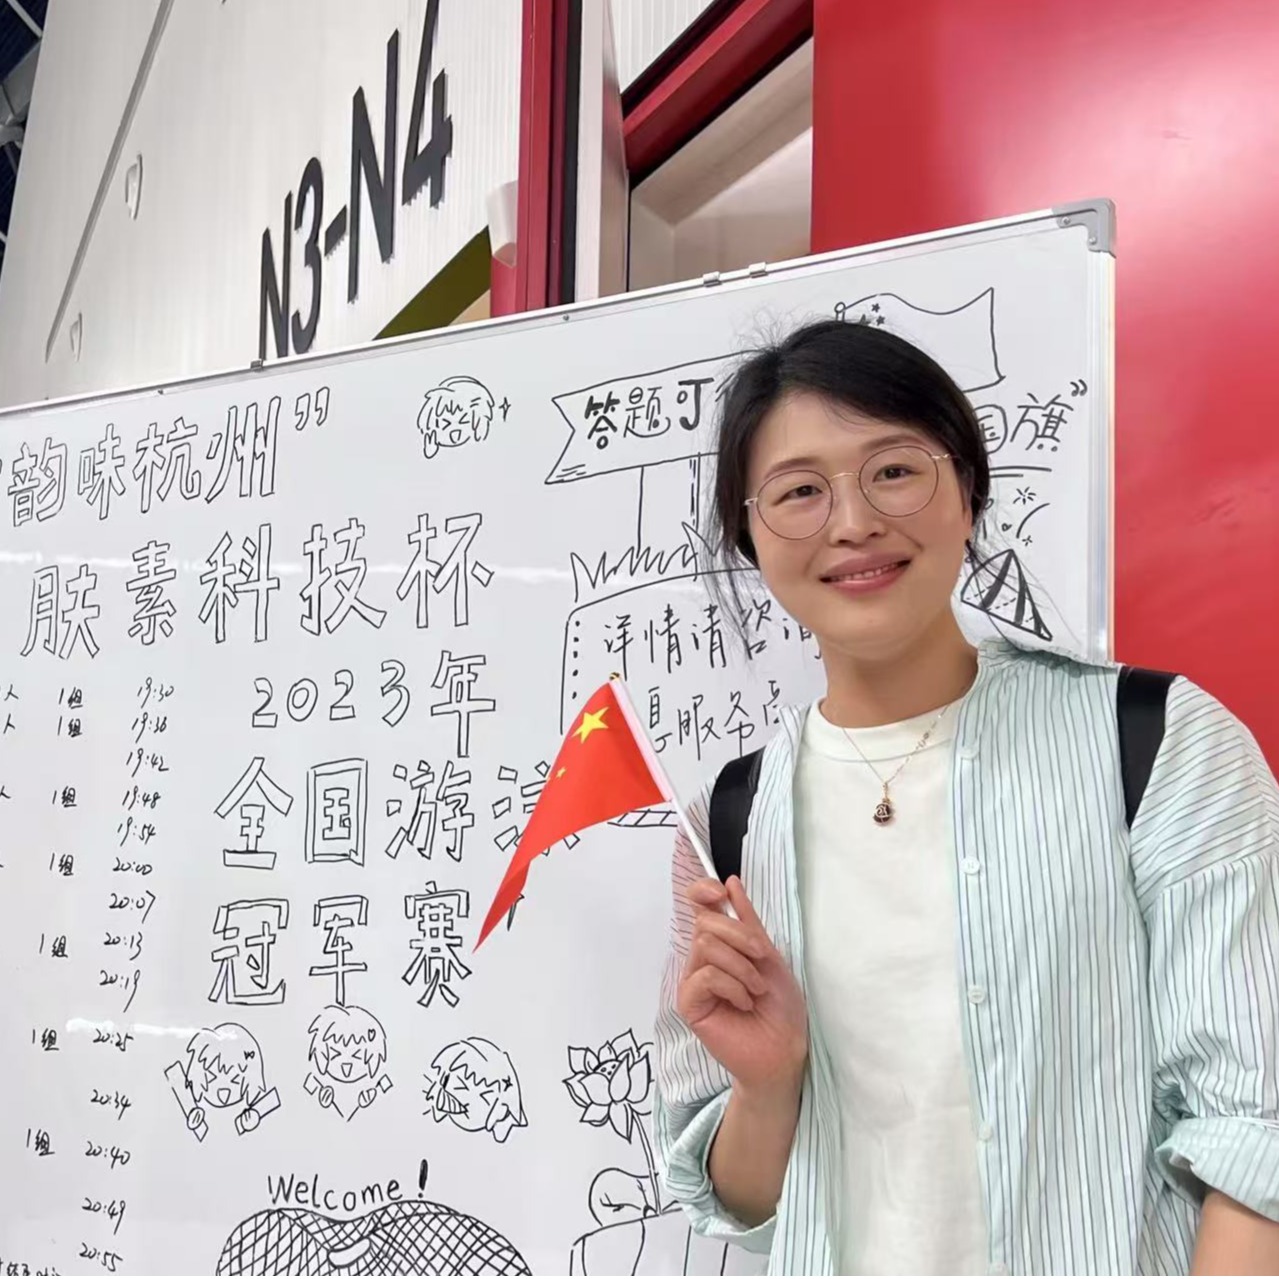 N3-N4
"韵味杭州"
肤素科技杯
2023年
全国游泳
冠军赛
答题可
国旗"
详情请咨询
息服务
人 1组 19:30
人 1组 19:36
19:42
人 1组 19:48
19:54
1组 20:00
20:07
1组 20:13
20:19
1组 20:25
20:34
1组 20:40
20:49
20:55
Welcome!